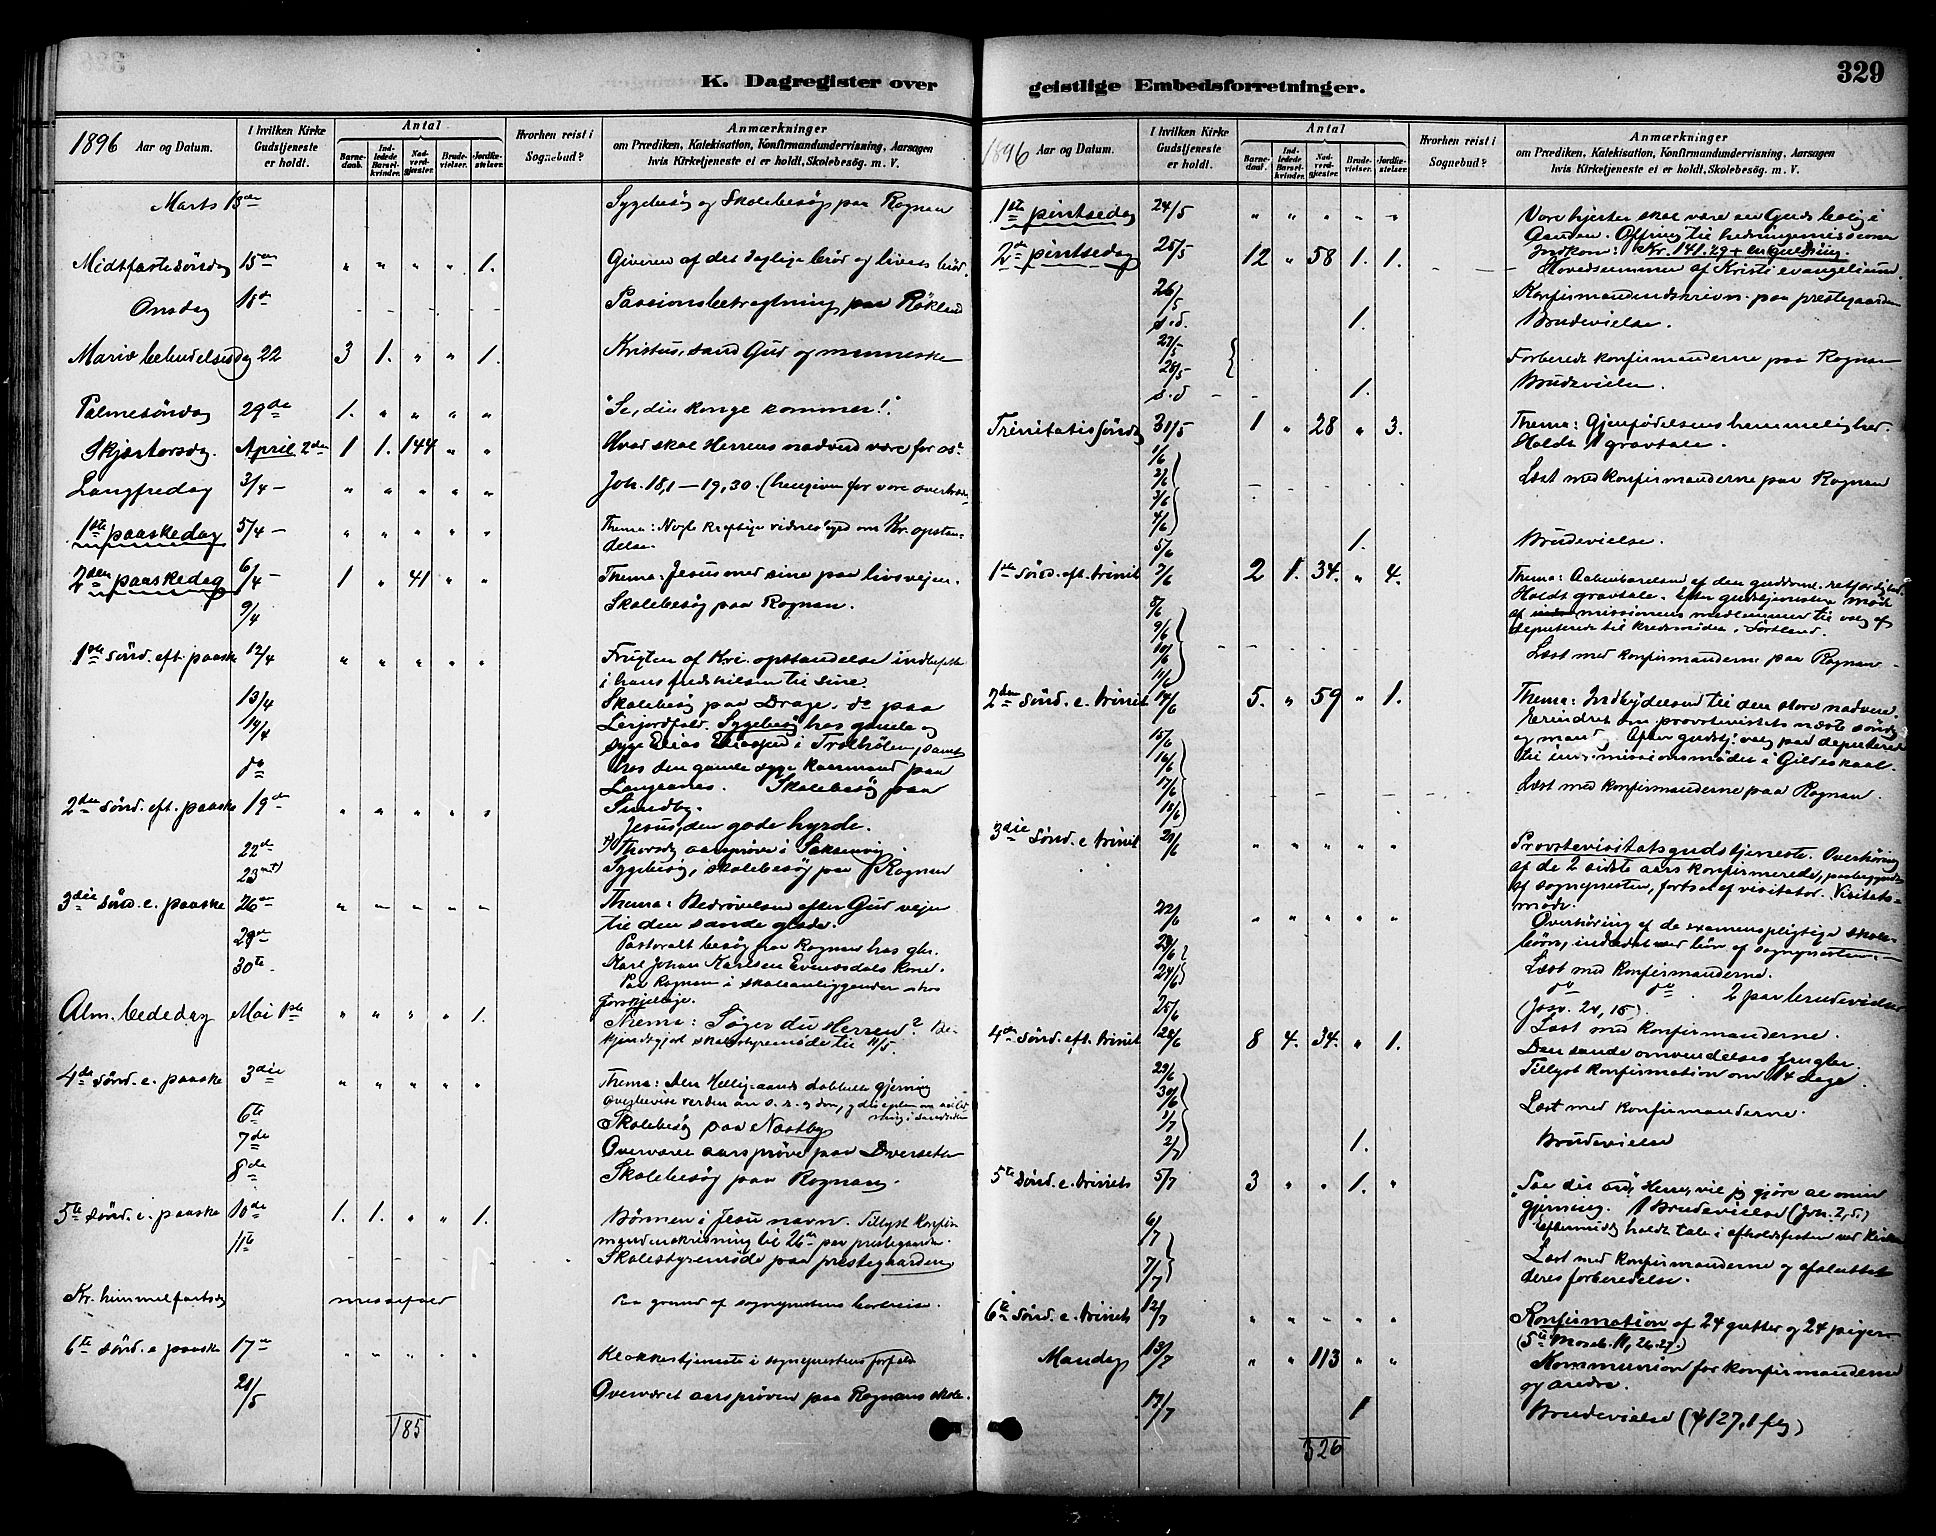 K. Dagregister over
1896 Aar og Datum.
I hvilken Kirke Gudstjeneste er holdt.
Antal
Barnedaab.
Indledede Barselkvinder.
Nadverdgjæster.
Brudevielser.
Jordfæstelser.
Hvorhen reist i Sognebud?
Anmærkninger
om Prædiken, Katekisation, Konfirmandundervisning, Aarsagen
hvis Kirketjeneste ei er holdt, Skolebesøg. m. V.
Marts 13de Sygebesøg og Skolebesøg paa Rognan
Midtfastesøndag 15de " " " " 1. Giveren af det daglige brød og livets brød.
Onsdag 18de - - - - - Passionsbetragtning paa Røkland
Mariæ bebudelsesdag 22 3 1. " " 1. Kristus, sand Gud og menneske
Palmesøndag 29de 1. " " " " "Se, din konge kommer!"
Skjærtorsdag. April 2den 1 1. 144 " " Hvad skal Herrens nadverd være for os?
Langfredag 3/4 - " " " " " Joh. 18,1 — 19,30. (hengiven for vore
1ste paaskedag 5/4 - " " " " " Thema: Nogle kraftige vidnesbyrd om Kr. opstan-
delse.
2den paaskedag 6/4 - 1 " 41 " " Thema: Jesus med sine paa livsveien.
9/4 Skolebesøg paa Rognan.
1ste sønd. eft. paaske 12/4 " " " " " Frugten af Kri. opstandelse indbefatt
i hans fredhilsen til sine.
13/4 Skolebesøg paa Drage, do paa
14/4 Sygebesøg hos gamle og
syge Elias i samt
do hos den gamle syge paa
Langsanes. Skolebesøg paa
2den sønd. eft. paaske 19de " " " " " Sundby.
Jesus, den gode hyrde.
22de Thorsdag aarsprøve i Saksenvig
23 Sygebesøg, skolebesøg paa Rognan
3die sønd. e. paaske 26de " " - - - Thema: Bedrøvelsen efter Gud veien
til den sande glæde.
29de Pastoralt besøg paa Rognan hos gbr.
30te Karl Johan Karlsen Evensdals kone.
Paa Rognan i skoleanliggender hos
forskjellige.
Alm. bededag Mai 1ste " " " " 1. Thema: Søger du Herren? Be-
kjendtgjort skolestyremøde til 11/5.
4de sønd. e. paaske 3die " " " " " Thema: Den Hellig-aands dobbelte gjerning
overbevise verden om s. r. og dom,
6te Skolebesøg paa Næstby
7de Overværet aarsprøve paa Dverset
8de Skolebesøg paa Rognan.
5te sønd. e. paaske 10de 1. 1. " " 1. Bønnen i Jesu navn. Tillyst konfir-
mandindskrivning til 26de paa prestegaarden.
11te Skolestyremøde paa prestegaarden
Kr. himmelfartsdag messefald Paa grund af sogneprestens bortreise.
6te sønd. e. paaske 17de " " " " " Klokkertjeneste i sogneprestens forfald
21/5 Overværet aarsprøven paa Rognans skole.
185
geistlige Embedsforretninger.
329
1896 Aar og Datum.
I hvilken Kirke Gudstjeneste er holdt.
Antal
Barnedaab.
Indledede Barselkvinder.
Nadverdgjæster.
Brudevielser.
Jordfæstelser.
Hvorhen reist i Sognebud?
Anmærkninger
om Prædiken, Katekisation, Konfirmandundervisning, Aarsagen
hvis Kirketjeneste ei er holdt, Skolebesøg. m. V.
1ste pintsedag 24/5 " " " " " Vore hjerter skal være en Guds bolig i
Aanden. Offring til hedningemissionen
Indkom: Kr. 141.29 + en guldring.
2den pintsedag 25/5 12 " 58 1. 1. - Hovedsummen af Kristi evangelium.
26/5 Konfirmandindskrivn. paa prestegaarden
s.d. 1. Brudevielse.
27/5
28/5 Forberedt konfirmanderne paa Rognan
s.d - - 1. Brudevielse.
Trinitatis søndag 31/5 1 " 28 " 3. Thema: Gjenfødelsens hemmelighed.
Holdt 1 gravtale.
1/6
2/6 Læst med konfirmanderne paa Rognan
3/6
4/6
5/6 1. Brudevielse.
1ste sønd. eft. trinit. 7/6 2 1. 34. " 4. Thema: Aabenbarelsen af den guddom. retfærdighed.
Holdt gravtale. Efter gudstjenesten møde
af missionens medlemmer til valg af
deputerede til kredsmøde i Sørtland.
8/6
9/6
10/6 Læst med konfirmanderne paa Rognan
11/6
2den sønd. e. trinit 14/6 5. " 59 " 1. Thema: Indbydelsen til den store nadvere.
Erindret om provstevisitats næste søndag
og mandag. Efter gudstj. valg paa deputerede
til indremissionsmødet i Gildeskaal.
15/6
16/6
17/6 Læst med konfirmanderne paa Rognan.
18/6
3die sønd. e. trinit 21/6 " " " " " Provstevisitatsgudstjeneste. Overhøring
af de 2 sidste aars konfirmerede,
af sognepresten, fortsat af visitator. Visitats-
møde.
22/6 " " " " " Overhøring af de examenspligtige skole-
børn, indledet med bøn af sognepresten.
23/6
24/6 Læst med konfirmanderne.
25/6 do do 2 par brudevielser
(Josv. 24, 15).
Læst med konfirmanderne.
4de sønd. eft. trinit 28/6 8 4. 34. " 1. Den sande omvendelses frugter.
Tillyst konfirmation om 14 dage.
29/6
30/6 Læst med konfirmanderne.
1/7
2/7 1. Brudevielse
5te sønd. e. trinits 5/7 3 " " 1. " "Paa dit ord, Herre, vil jeg gjøre al min
gjerning. 1 Brudevielse (Joh. 2,5.)
Eftermidd. holdt tale i afholdsfesten ved kirken
6/7 Læst med konfirmanderne og afsluttet
7/7 deres forberedelse.
6te sønd. e. trinits 12/7 " " " " " Konfirmation af 24 gutter og 24 piger
(5te Moseb. 11, 26-27.)
Mandag 13/7 " " 113 " " Kommunion for konfirmanderne
og andre.
17/7 1 Brudevielse (ψ 127, 1 flg)
326